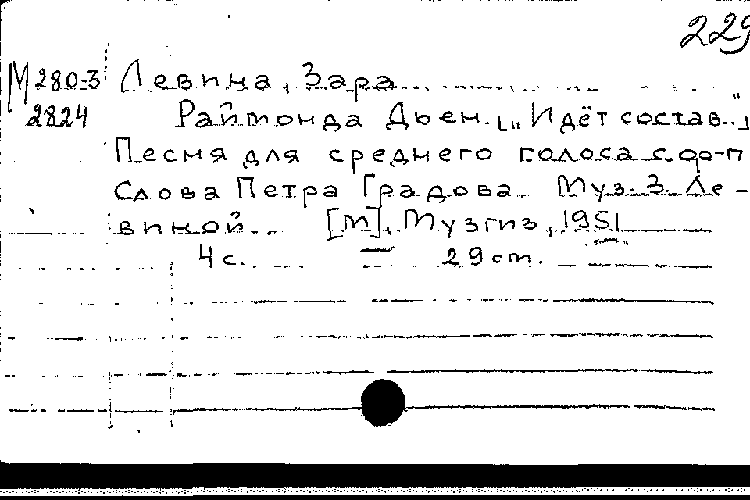 229
М 280-3 Левина, Зара
2824 Раймонда Дьен. [„Идёт состав.."]
Песня для среднего голоса с ф-п
Слова Петра Градова. Муз. З. Ле-
виной. [М], Музгиз, 1951
4 с. — 29 cm.